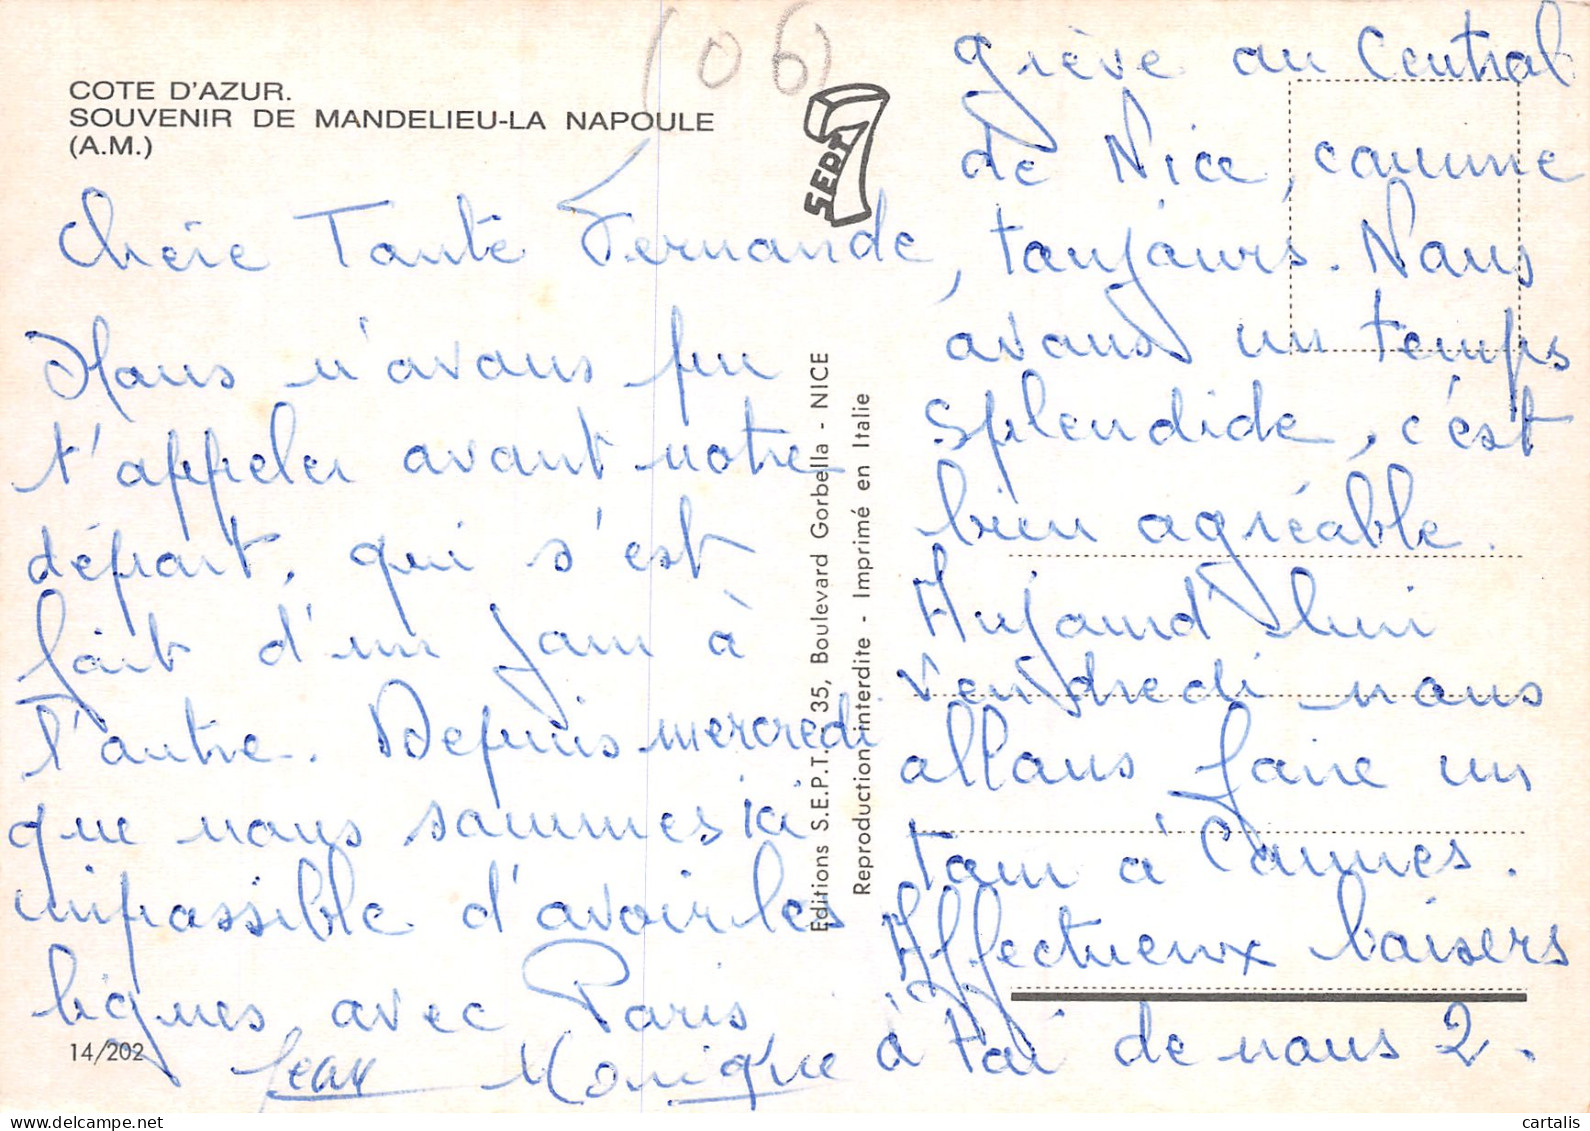 (06)
COTE D'AZUR.
SOUVENIR DE MANDELIEU-LA NAPOULE
(A.M.)
SEPT 7
Chère Tante Fernande,
Nous n'avons pu
t'appeler avant notre
départ, qui s'est
fait d'un jour à
l'autre. Depuis mercredi
que nous sommes ici
impossible d'avoir les
lignes avec Paris,
grève au Central
de Nice, comme
toujours. Nous
avons un temps
splendide, c'est
bien agréable.
Aujourd'hui
vendredi nous
allons faire un
tour à Cannes.
Affectueux baisers
à toi de nous 2.
Jean Monique
14/202
Editions S.E.P.T. - 35, Boulevard Gorbella - NICE
Reproduction interdite - Imprimé en Italie
www.delcampe.net
cartalis